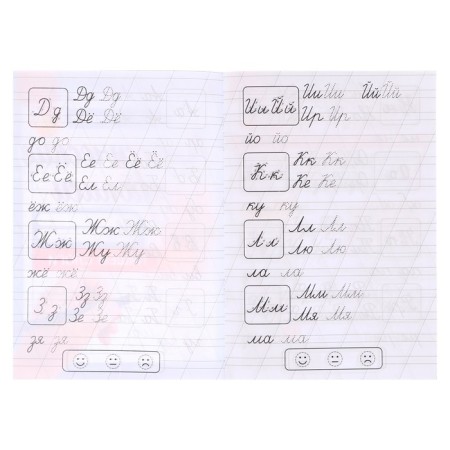 Дд Дд Дд
Дё Дё
до до
Ее Ёё Ее Ее Ёё Ёё
Ел Ел
ёж ёж
Жж Жж Жж
Жу Жу
жё жё
Зз Зз Зз
Зе Зе
зя зя
Ии Йй Ии Ии Йй Йй
Ир Ир
йо йо
Кк Кк Кк
Ке Ке
ку ку
Лл Лл Лл
Лю Лю
ла ла
Мм Мм Мм
Мя Мя
ма ма